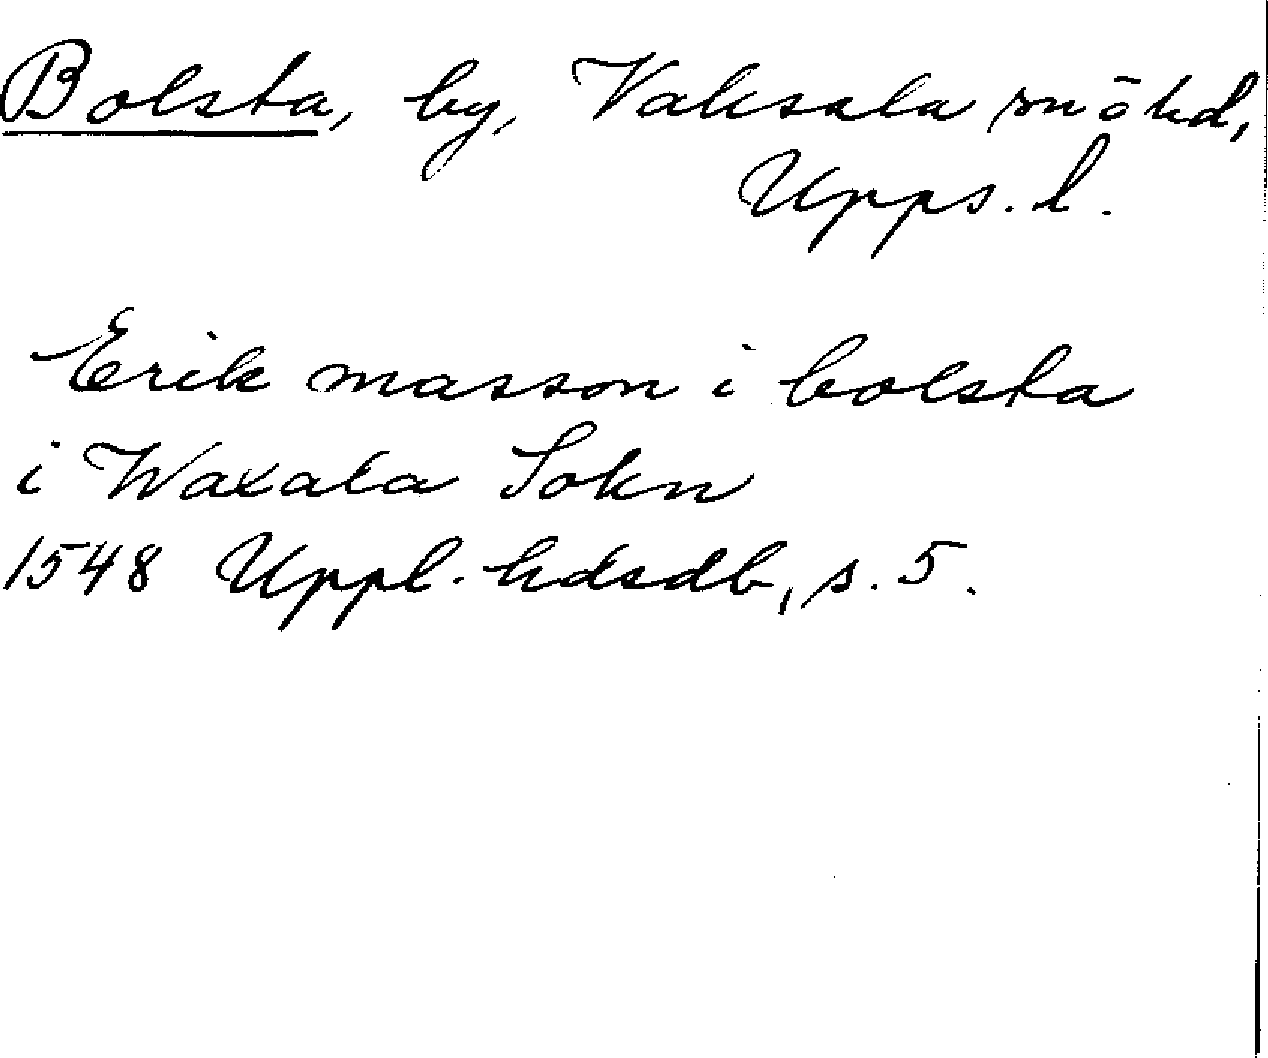 Bolsta, by, Vaksala sn ö hd,
Upps. l.
Erik masson i bolsta
i Waxala Sokn
1548 Uppl. hdsdb, s. 5.